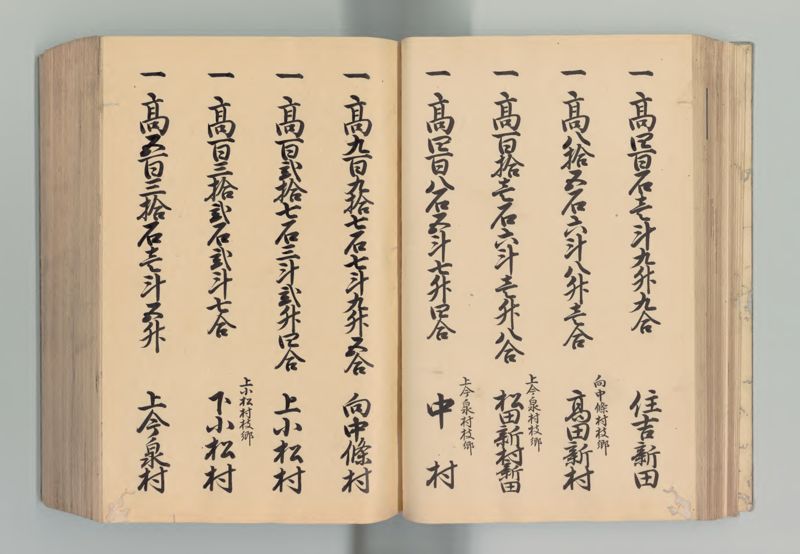 一高四百石壱斗九升九合 住吉新田
一高八拾五石六斗八升壱合 向中條村枝郷 高田新村
一高百拾壱石六斗壱升八合 上今泉村枝郷 松田新村新田
一高四百八石五斗七升四合 上今泉村枝郷 中村
一高九百九拾七石七斗九升五合 向中條村
一高百弐拾七石三斗弐升四合 上小松村
一高百三拾弐石弐斗七合 上小松村枝郷 下小松村
一高五百三拾石壱斗五升 上今泉村